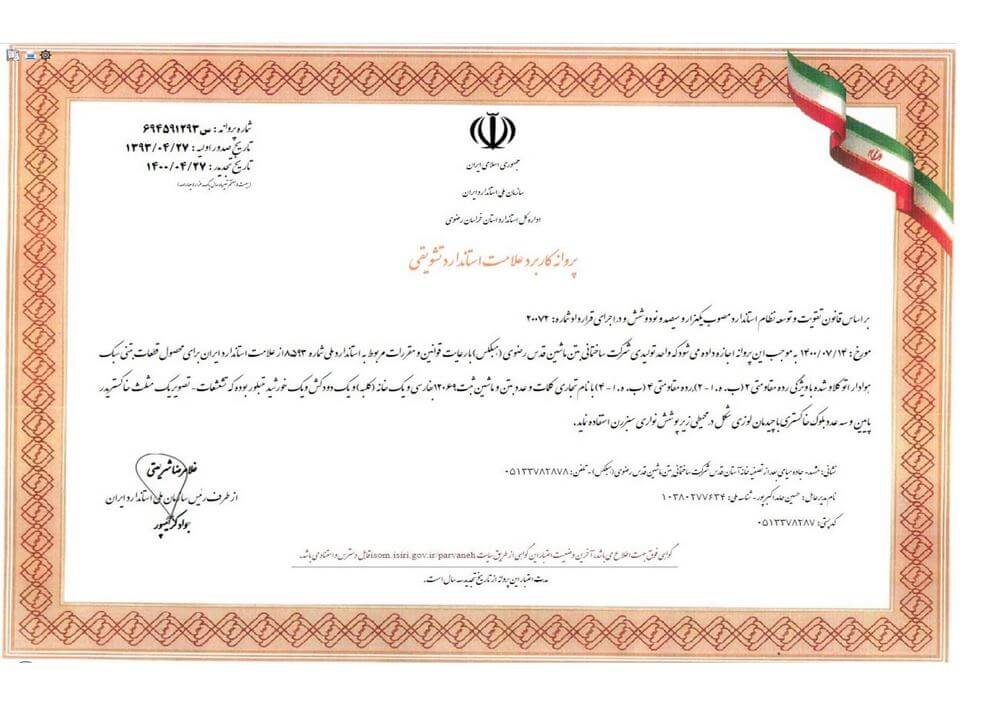 شماره پروانه : س ۶۹۴۵۹۱۲۹۳
تاریخ صدور اولیه : ۱۳۹۳/۰۴/۲۷
تاریخ تجدید : ۱۴۰۰/۰۴/۲۷
جمهوری اسلامی ایران
سازمان ملی استاندارد ایران
اداره کل استاندارد استان خراسان رضوی
پروانه کاربرد علامت استاندارد تشویقی
بر اساس قانون تقویت و توسعه نظام استاندارد مصوب یکهزار و سیصد و نود و شش و در اجرای قرارداد شماره : ۲۰۰۷۲
مورخ : ۱۴۰۰/۰۷/۱۴ به موجب این پروانه اجازه داده می شود که واحد تولیدی شرکت ساختمانی بتن ماشین قدس رضوی (هبلکس) با رعایت قوانین و مقررات مربوط به استاندارد ملی شماره ۸۵۹۳ از علامت استاندارد ایران برای محصول قطعات بتنی سبک
هوادار اتوکلاو شده با ویژگی رده مقاومتی ۲ (ب.ه.ا-۲)،رده مقاومتی ۴ (ب.ه.ا-۴) با نام تجاری کلمات و عدد بتن و ماشین ثبت ۱۲۰۶۹ فارسی و یک خانه (کلبه) و یک دودکش و یک خورشید متبلور بوده که تشعشعات - تصویر یک مثلث خاکستری در
پایین و سه عدد بلوک خاکستری با چیدمان لوزی شکل در محیطی زیر پوشش نواری سبز رن استفاده نماید.
نشانی : مشهد - جاده سیمی بعد از تصفیه خانه آستان قدس شرکت ساختمانی بتن ماشین قدس رضوی (هبلکس) - تلفن : ۰۵۱۳۳۷۸۲۸۷۸
نام مدیرعامل : حسین حامد اکبرپور - شناسه ملی : ۱۰۳۸۰۲۷۷۶۳۴
کد پستی : ۰۵۱۳۳۷۸۲۸۷
غلامرضا شریعتی
از طرف رئیس سازمان ملی استاندارد ایران
گواهی فوق جهت اطلاع می باشد، آخرین وضعیت اعتبار این گواهی از طریق سایت isom.isiri.gov.ir/parvaneh قابل دسترس و استناد می باشد.
مدت اعتبار این پروانه از تاریخ تجدید سه سال است.